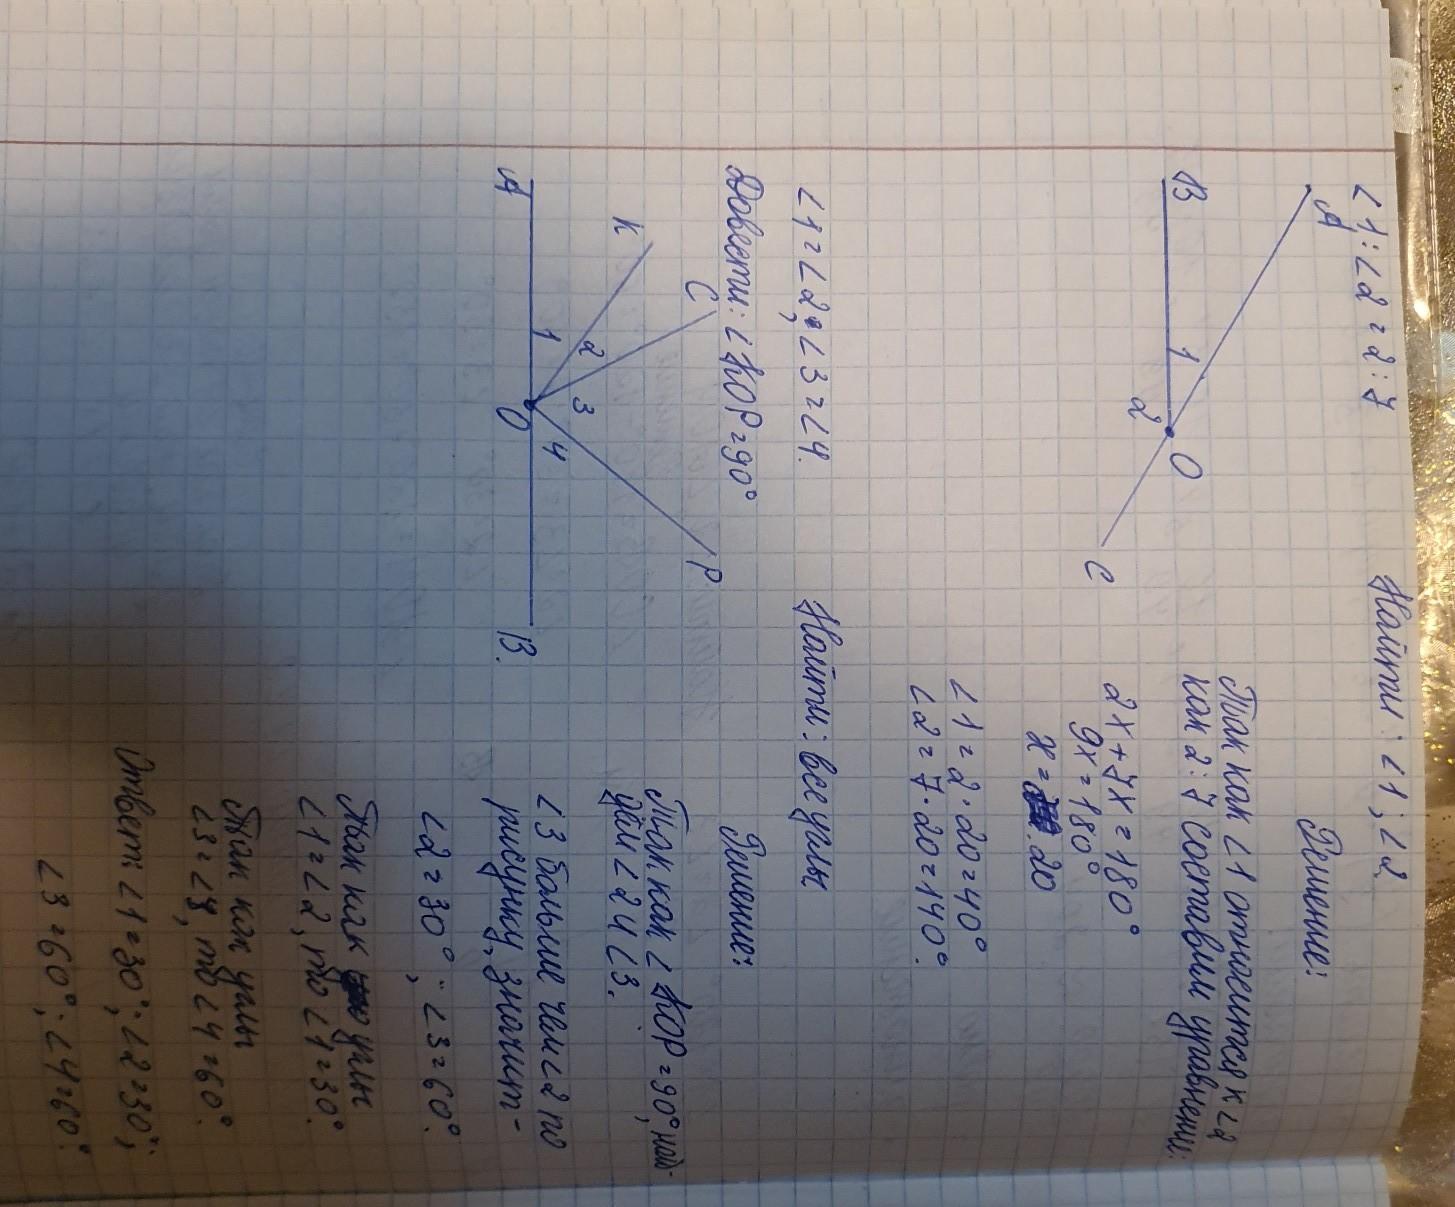 ∠1 : ∠2 = 2 : 7
Найти: ∠1; ∠2
A
B
1
2
O
C
Решение:
Так как ∠1 относится к ∠2
как 2:7 составим уравнение:
2x + 7x = 180°
9x = 180°
x = 20
∠1 = 2 · 20 = 40°
∠2 = 7 · 20 = 140°.
∠1 = ∠2, ∠3 = ∠4.
Довести: ∠KOP = 90°
Найти: все углы
A
K
C
1
2
3
4
O
P
B.
Решение:
Так как ∠KOP = 90°, най-
дём ∠2 и ∠3.
∠3 больше чем ∠2 по
рисунку, значит -
∠2 = 30°; ∠3 = 60°.
Так как углы
∠1 = ∠2, то ∠1 = 30°.
Так как углы
∠3 = ∠4, то ∠4 = 60°.
Ответ: ∠1 = 30°; ∠2 = 30°;
∠3 = 60°; ∠4 = 60°.